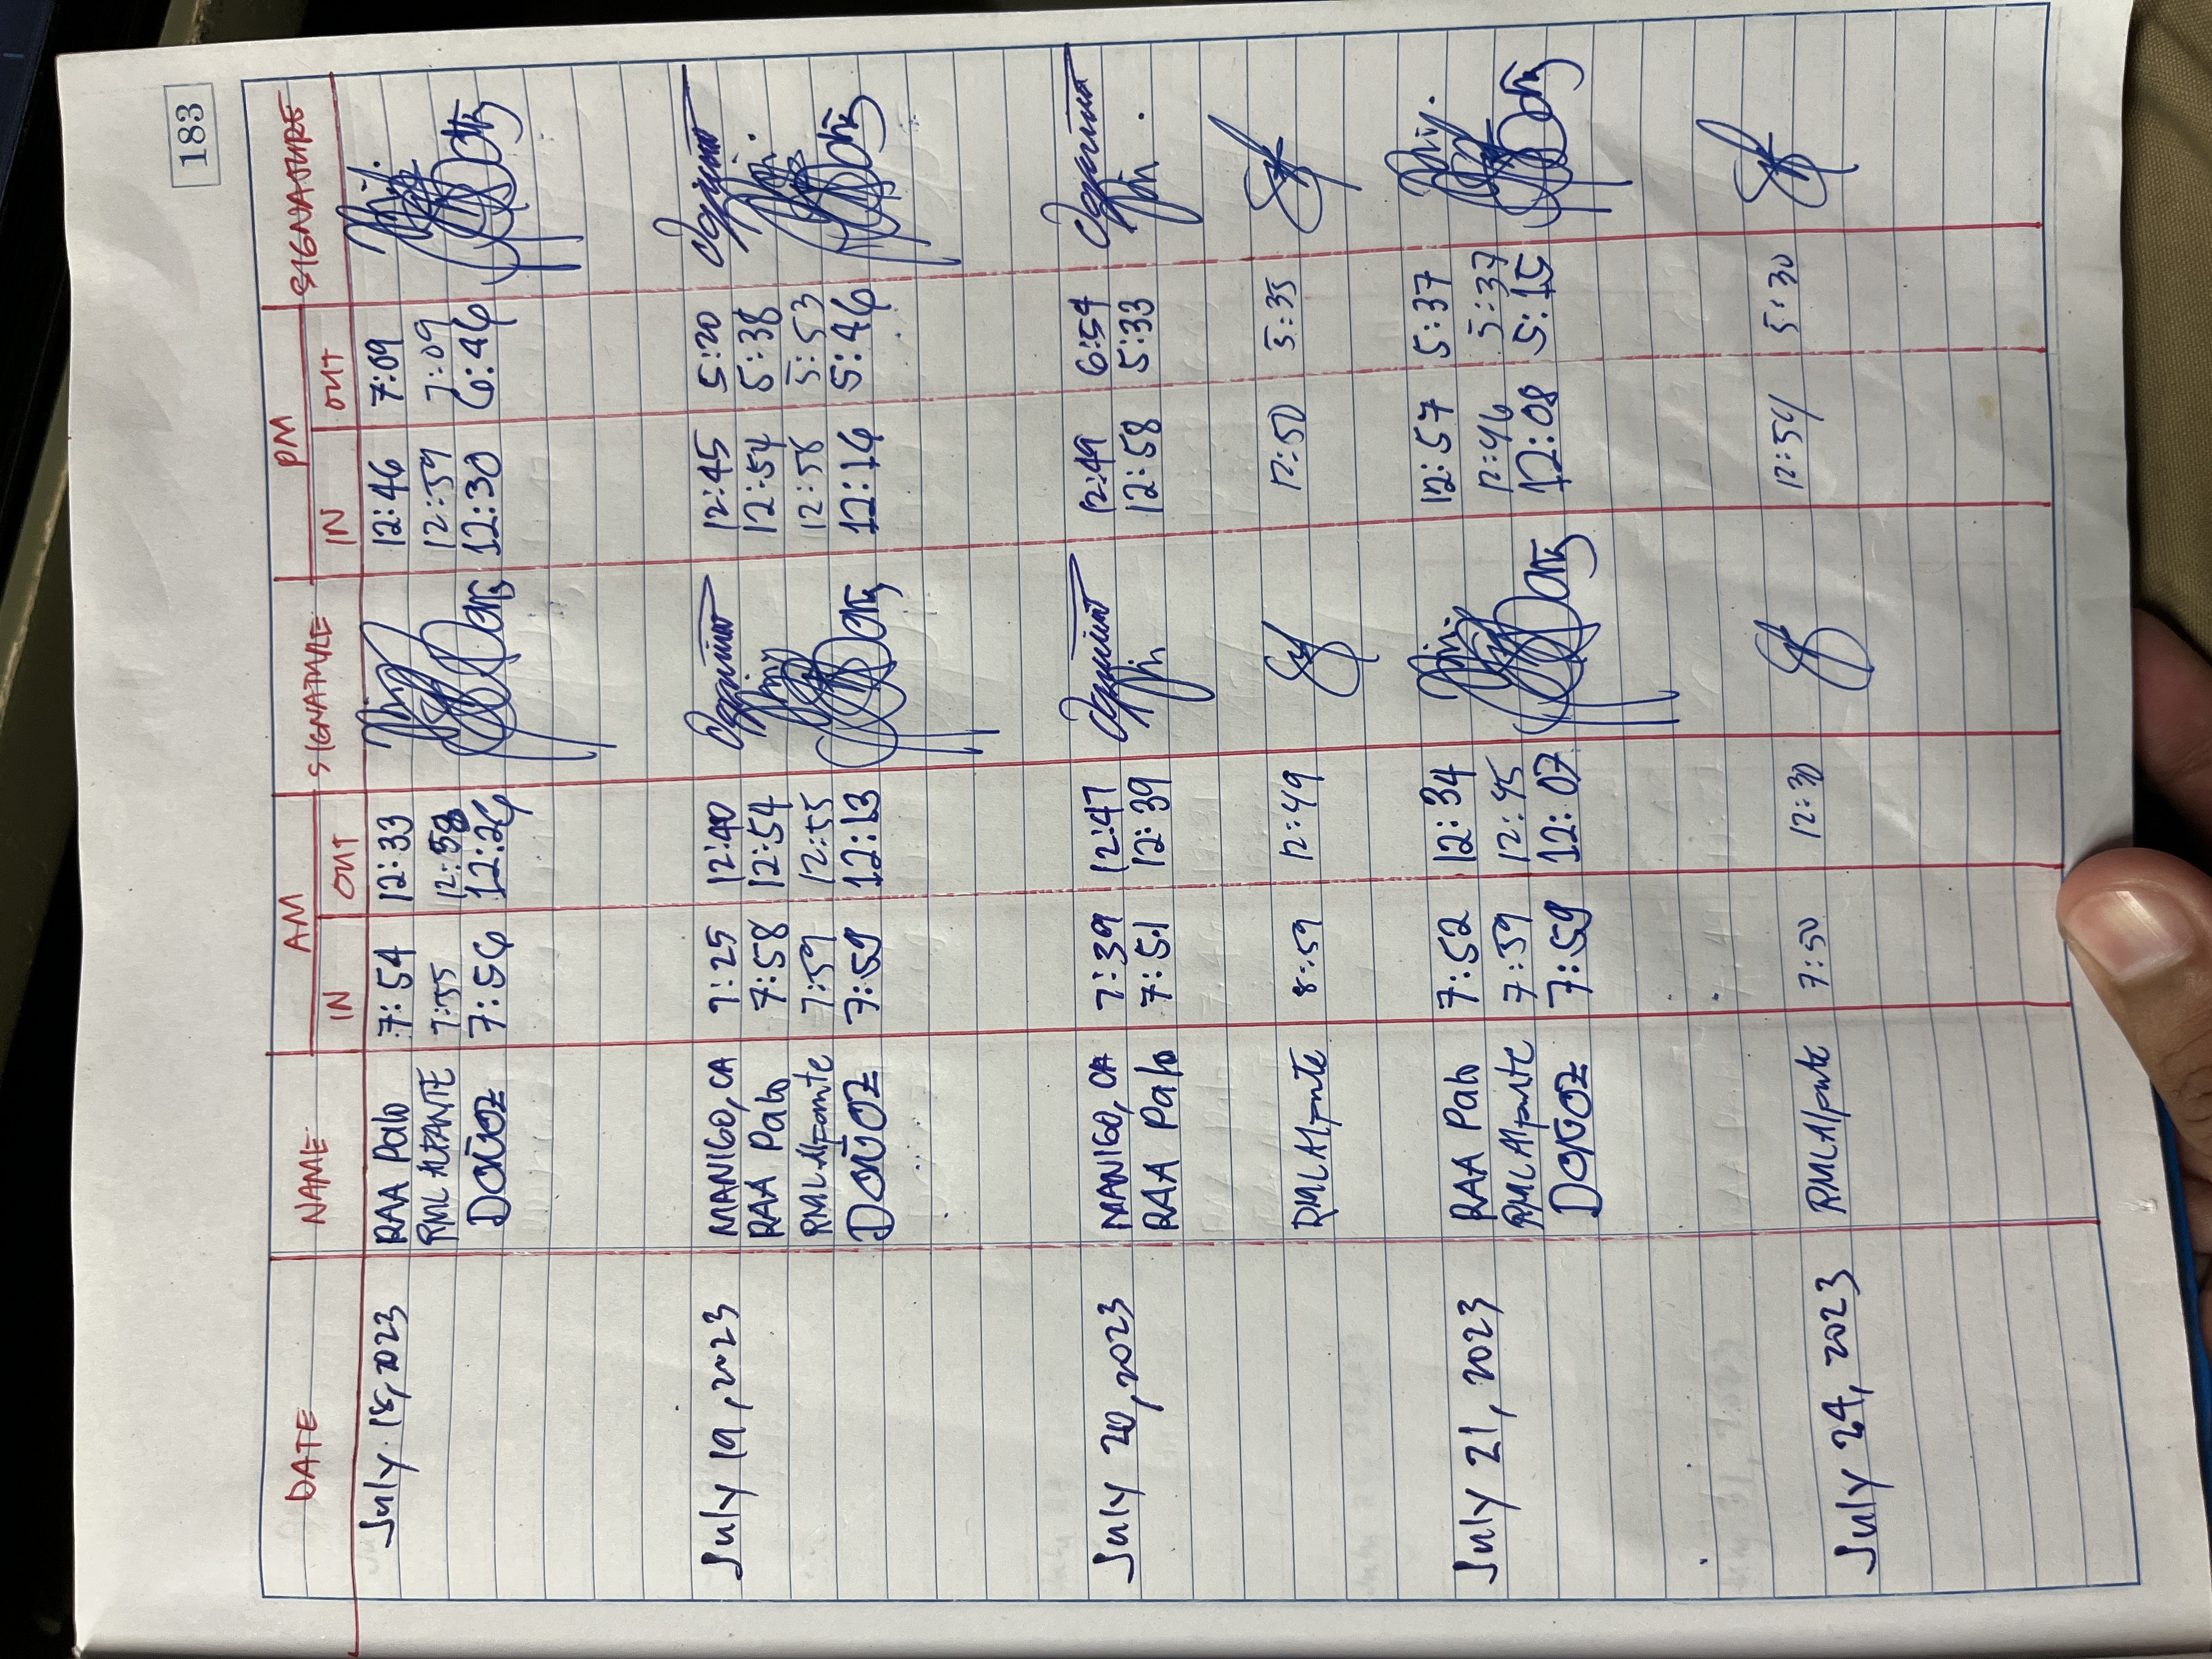 183
DATE NAME AM SIGNATURE PM SIGNATURE
IN OUT IN OUT
July 18, 2023 RAA Palo 7:54 12:33 12:46 7:09
RML ALPANTE 7:55 12:58 12:59 7:09
DOÑOZ 7:56 12:26 12:30 6:46
July 19, 2023 MANIGO, CA 7:25 12:40 12:45 5:20
RAA Palo 7:58 12:54 12:54 5:38
RMLAlpante 7:59 12:55 12:58 5:53
DOÑOZ 7:59 12:13 12:14 5:46
July 20, 2023 MANIGO, CA 7:39 12:47 12:49 6:54
RAA Palo 7:51 12:39 12:58 5:33
RMLAlpante 8:59 12:49 12:50 5:35
July 21, 2023 RAA Palo 7:52 12:34 12:57 5:37
RMLAlpante 7:39 12:45 12:46 5:37
DOÑOZ 7:59 12:07 12:08 5:15
July 24, 2023 RMLAlpante 7:50 12:30 12:54 5:30